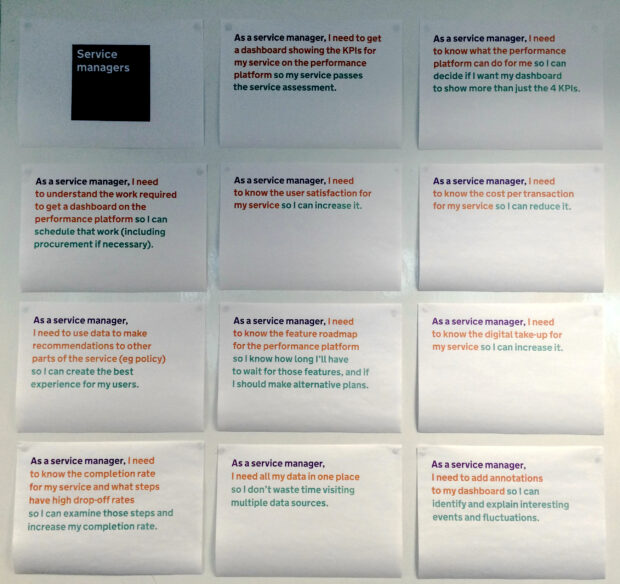 Service
managers
As a service manager, I need to get
a dashboard showing the KPIs for
my service on the performance
platform so my service passes
the service assessment.
As a service manager, I need
to know what the performance
platform can do for me so I can
decide if I want my dashboard
to show more than just the 4 KPIs.
As a service manager, I need
to understand the work required
to get a dashboard on the
performance platform so I can
schedule that work (including
procurement if necessary).
As a service manager, I need
to know the user satisfaction for
my service so I can increase it.
As a service manager, I need
to know the cost per transaction
for my service so I can reduce it.
As a service manager,
I need to use data to make
recommendations to other
parts of the service (eg policy)
so I can create the best
experience for my users.
As a service manager, I need
to know the feature roadmap
for the performance platform
so I know how long I'll have
to wait for those features, and if
I should make alternative plans.
As a service manager, I need
to know the digital take-up for
my service so I can increase it.
As a service manager, I need
to know the completion rate
for my service and what steps
have high drop-off rates
so I can examine those steps and
increase my completion rate.
As a service manager,
I need all my data in one place
so I don't waste time visiting
multiple data sources.
As a service manager,
I need to add annotations
to my dashboard so I can
identify and explain interesting
events and fluctuations.